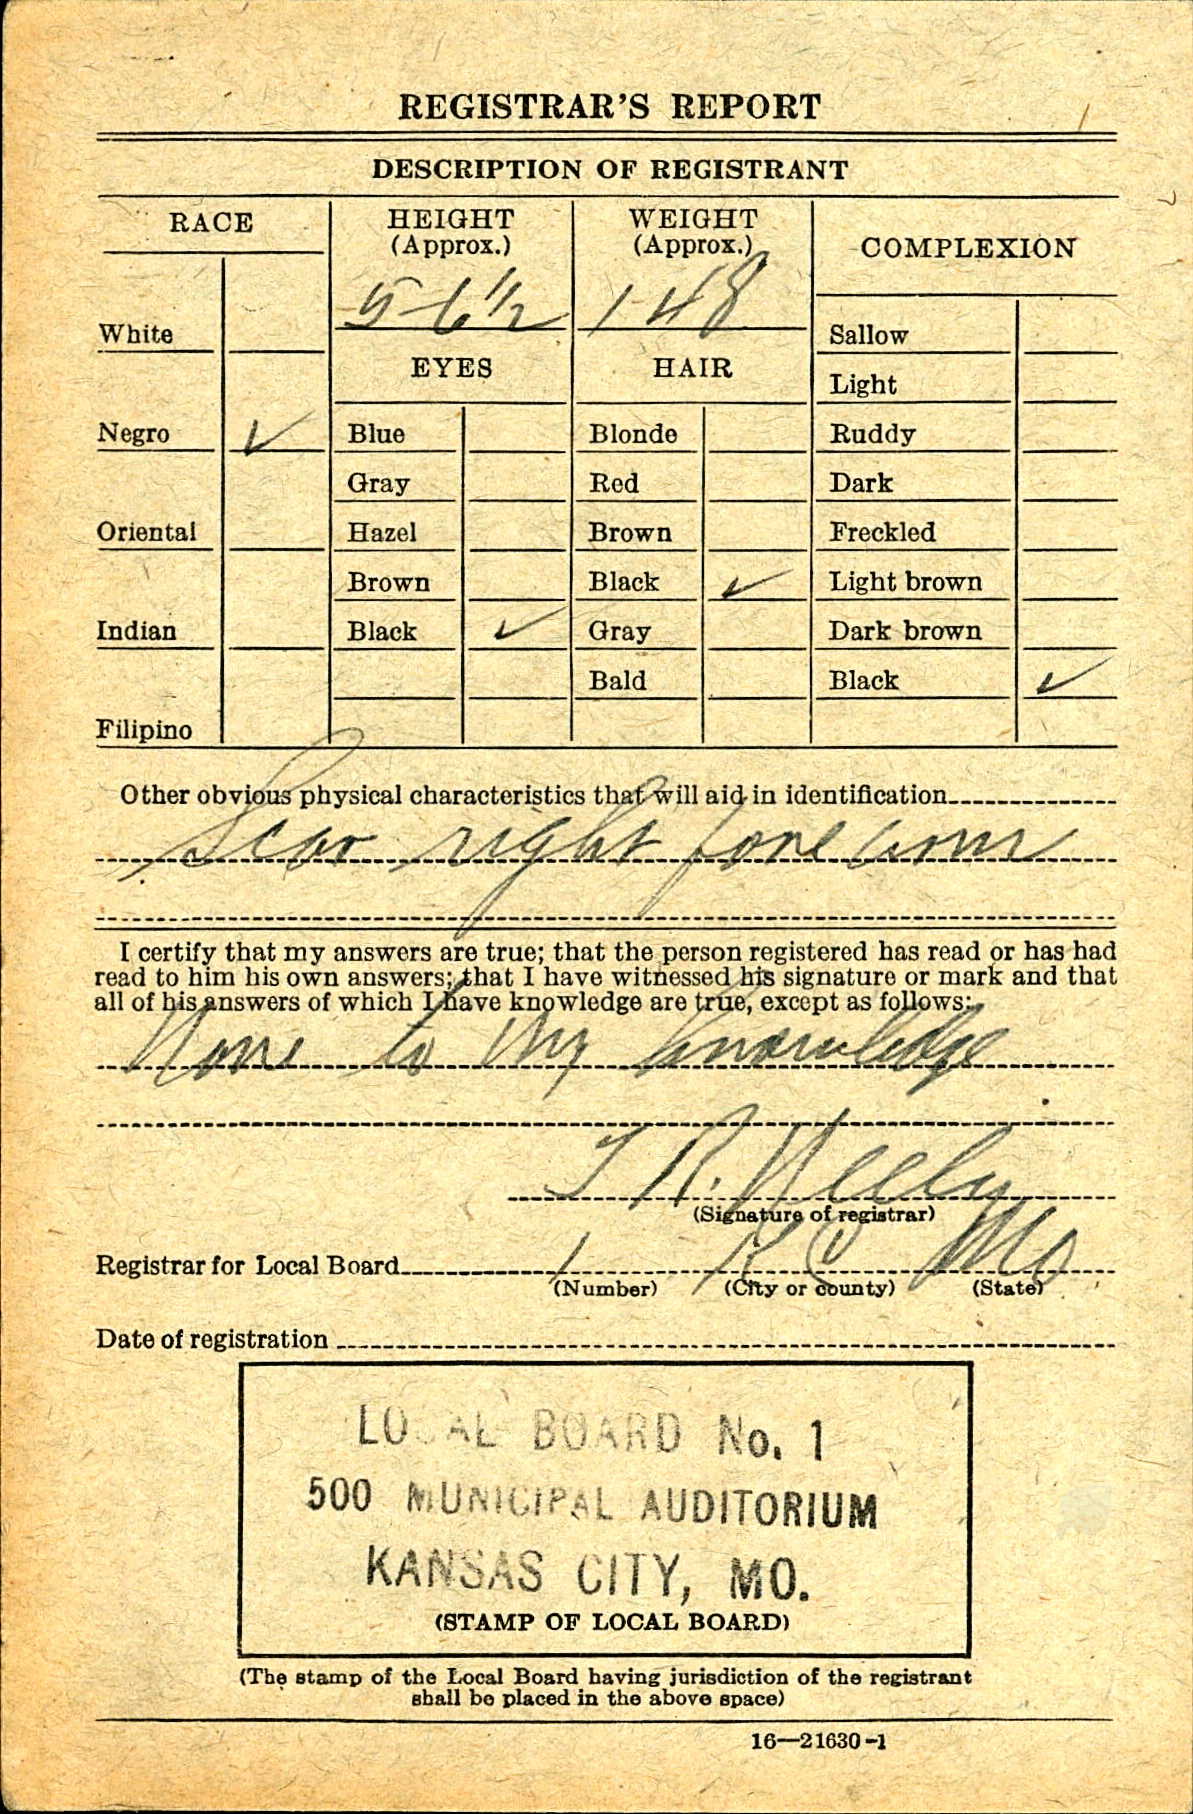 REGISTRAR'S REPORT
DESCRIPTION OF REGISTRANT
RACE
HEIGHT
(Approx.)
WEIGHT
(Approx.)
COMPLEXION
5-6½
148
White
Sallow
EYES
HAIR
Light
Negro ✓
Blue
Blonde
Ruddy
Gray
Red
Dark
Oriental
Hazel
Brown
Freckled
Brown
Black ✓
Light brown
Indian
Black ✓
Gray
Dark brown
Bald
Black ✓
Filipino
Other obvious physical characteristics that will aid in identification
Scar right fore arm
I certify that my answers are true; that the person registered has read or has had
read to him his own answers; that I have witnessed his signature or mark and that
all of his answers of which I have knowledge are true, except as follows:
None to My knowledge
T R. Neely
(Signature of registrar)
Registrar for Local Board 1 K C Mo
(Number) (City or county) (State)
Date of registration
LOCAL BOARD No. 1
500 MUNICIPAL AUDITORIUM
KANSAS CITY, MO.
(STAMP OF LOCAL BOARD)
(The stamp of the Local Board having jurisdiction of the registrant
shall be placed in the above space)
16—21630-1